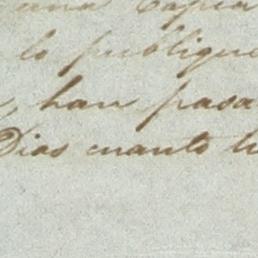 una Copia
lo publique
, han pasa
Dios cuanto